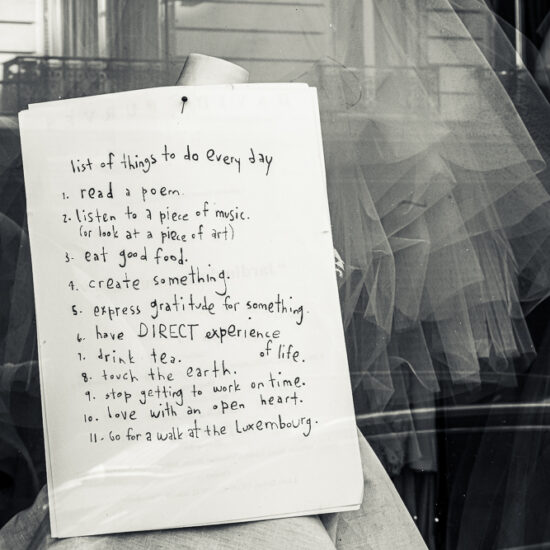 list of things to do every day
1. read a poem.
2. listen to a piece of music.
(or look at a piece of art)
3. eat good food.
4. create something.
5. express gratitude for something.
6. have DIRECT experience
of life.
7. drink tea.
8. touch the earth.
9. stop getting to work on time.
10. love with an open heart.
11. Go for a walk at the Luxembourg.